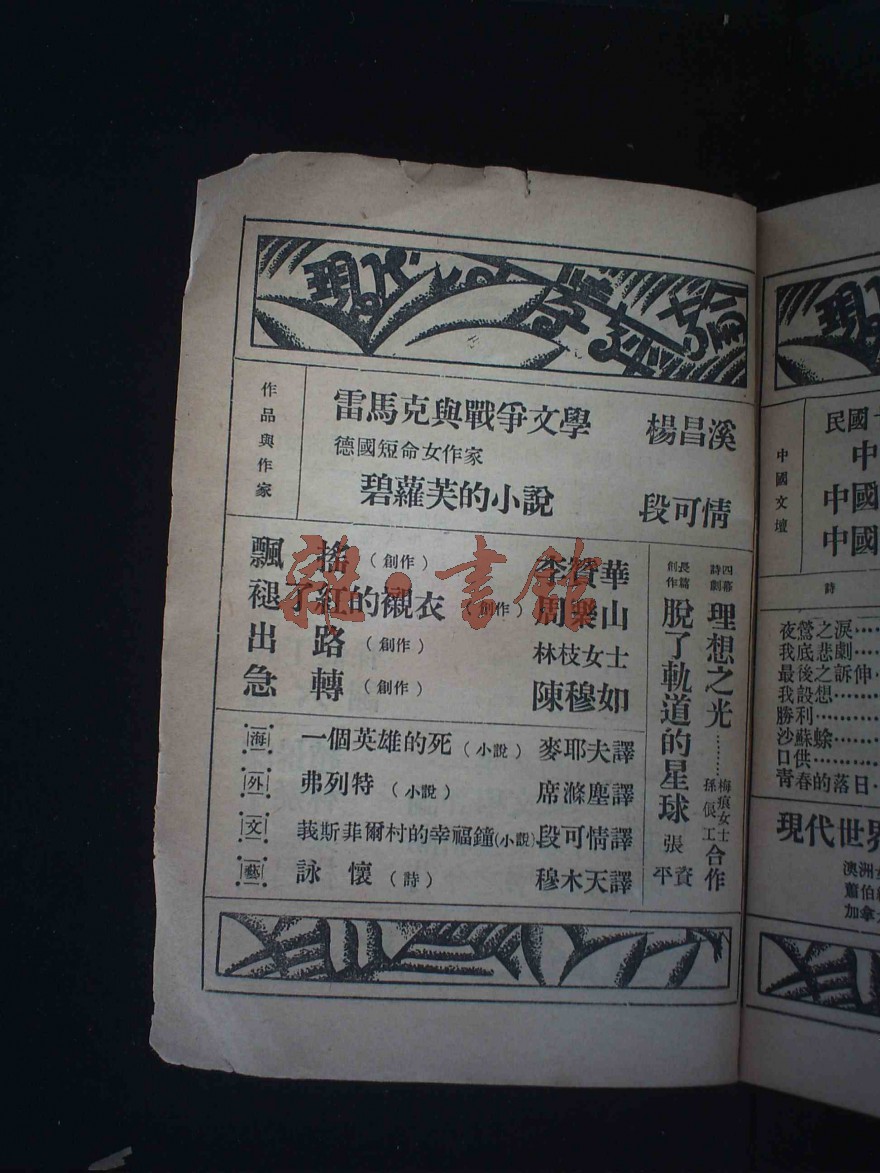 現代文學評論
作品與作家
雷馬克與戰爭文學 楊昌溪
德國短命女作家
碧蘿芙的小說 段可情
飄搖(創作) 李贊華
褪了紅的襯衣(創作) 周樂山
出路(創作) 林枝女士
急轉(創作) 陳穆如
四幕詩劇 理想之光……梅痕女士 孫俍工 合作
長篇創作 脫了軌道的星球 張資平
海外文藝
一個英雄的死(小說) 麥耶夫譯
弗列特(小說) 席滌塵譯
莪斯菲爾村的幸福鐘(小說) 段可情譯
詠懷(詩) 穆木天譯
雜·書館
現
中國文壇
民國
中
中國
中國
詩
夜鶯之淚……
我底悲劇……
最後之訴伸…
我設想……
勝利……
沙蘇蜍……
口供……
青春的落日
現代世界
澳洲
蕭伯
加拿